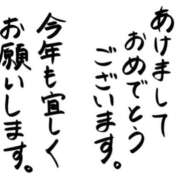 あけまして
おめでとう
ございます。
今年も宜しく
お願いします。